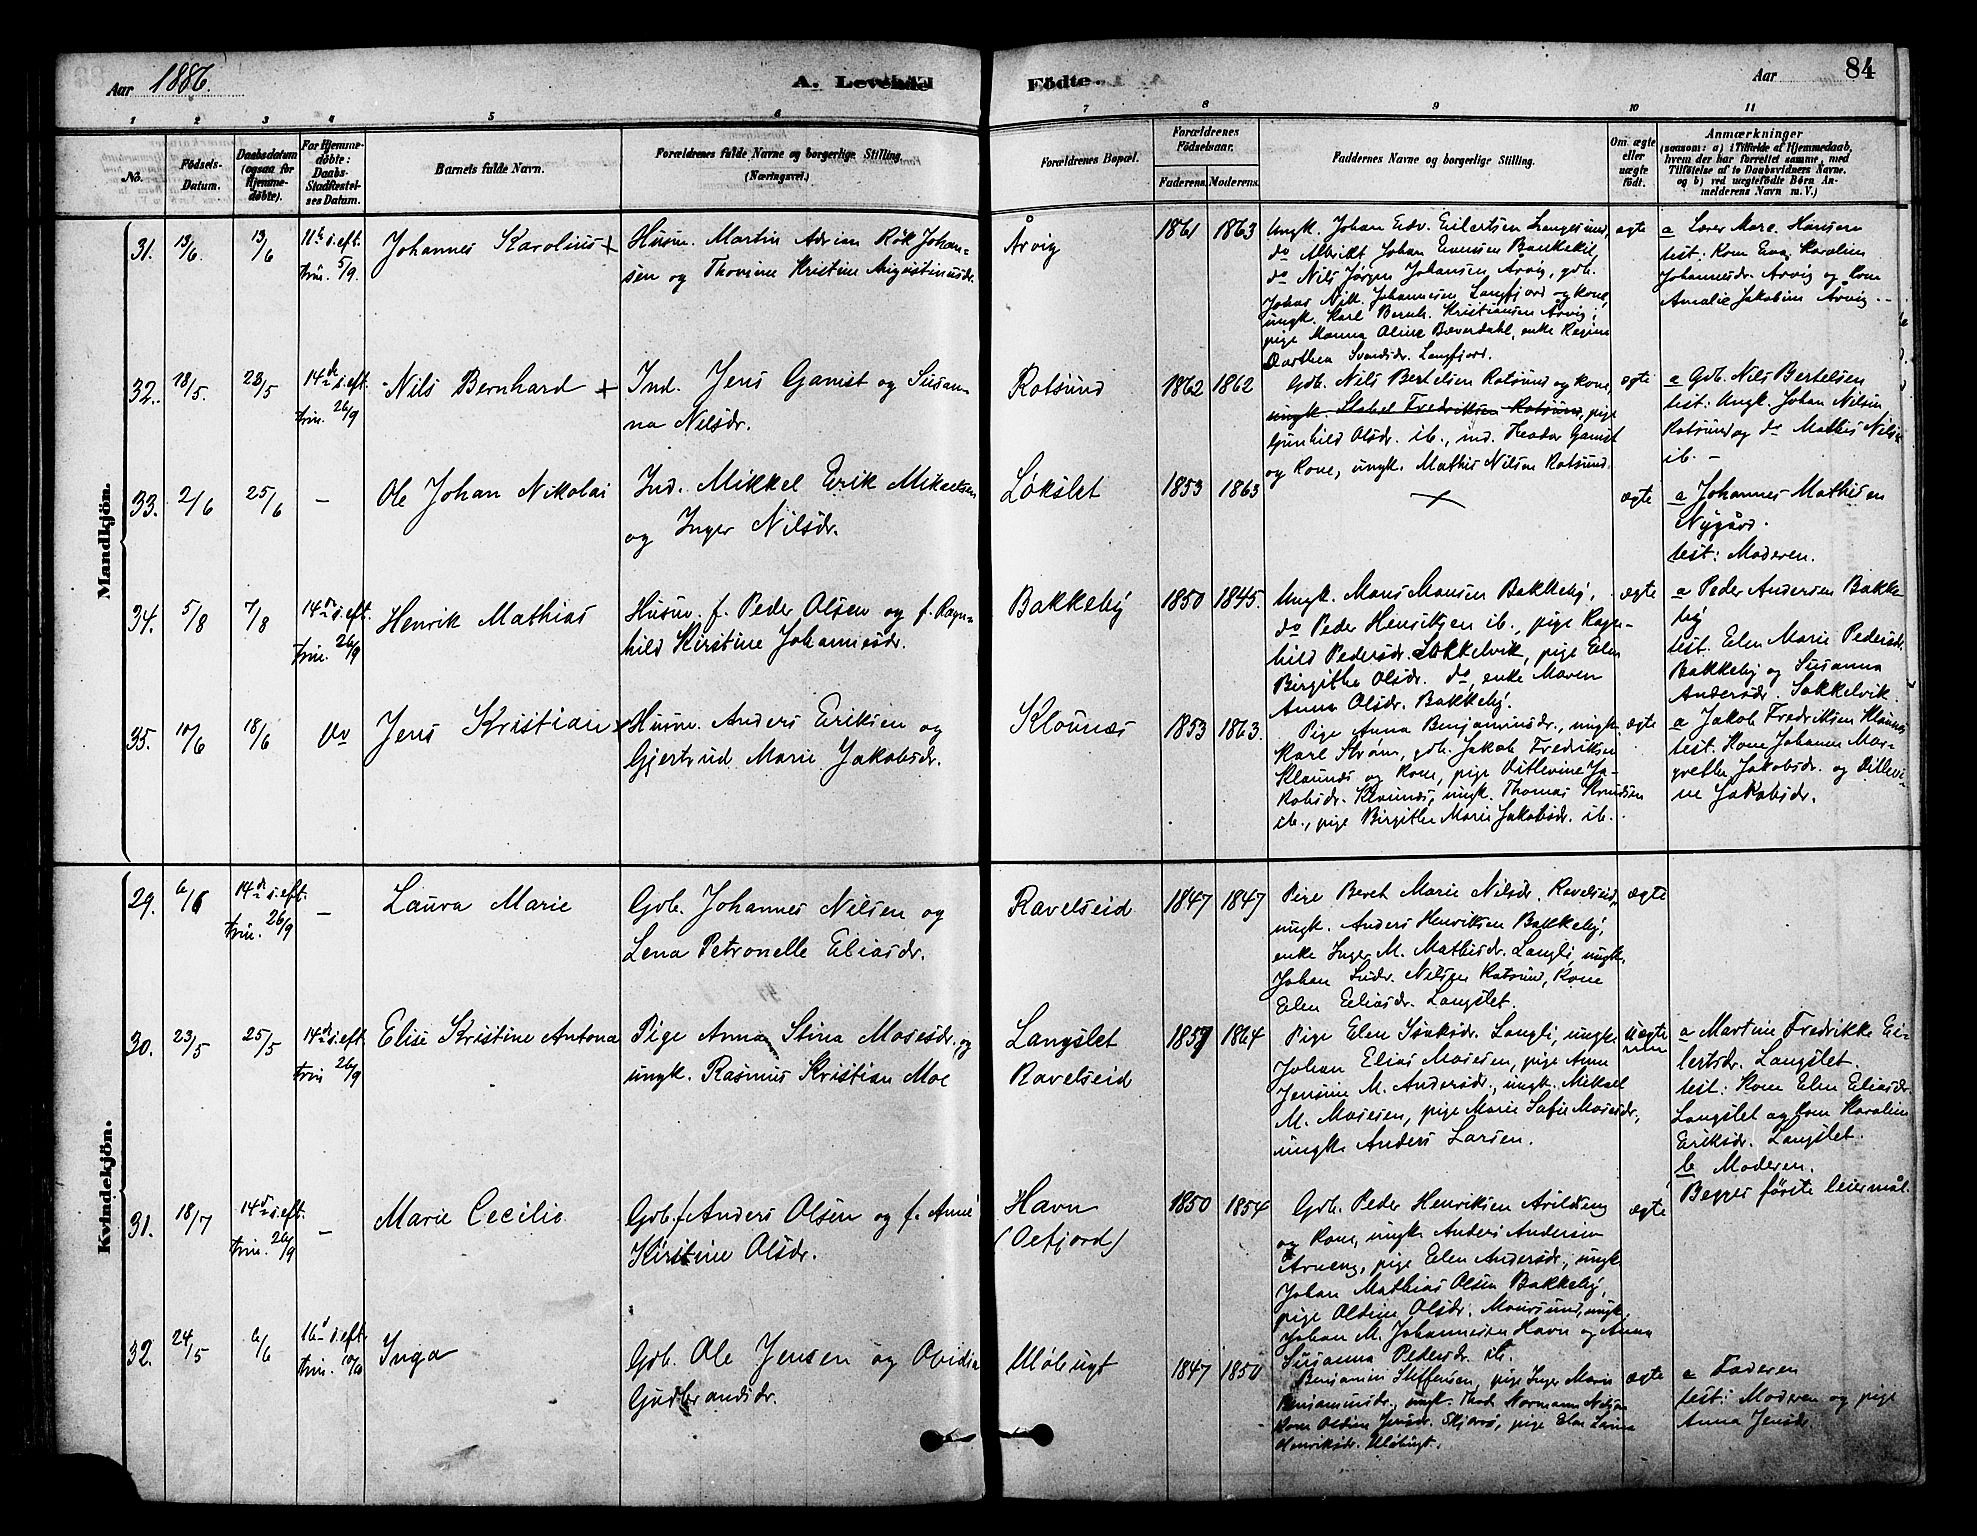 Aar 1886.
A. Levende
Födte.
Aar
84
1
2
3
4
5
6
7
8
9
10
11
No.
Födsels-
Datum.
Daabsdatum
(ogsaa for
Hjemme-
döbte).
For Hjemme-
döbte:
Daabs-
Stadfæstel-
ses Datum.
Barnets fulde Navn.
Forældrenes fulde Navne og borgerlige Stilling.
(Næringsvei.)
Forældrenes Bopæl.
Forældrenes
Födselsaar.
Faderens.
Moderens.
Faddernes Navne og borgerlige Stilling.
Om ægte
eller
uægte
födt.
Anmærkninger
(saasom: a) i Tilfælde af Hjemmedaab,
hvem der har forrettet samme, med
Tilföielse af to Daabsvidners Navne.
og b) ved uægtefödte Börn An-
melderens Navn m. V.)
Mandkjön.
31.
13/6.
13/6
11te s. eft.
trin. 5/9.
Johannes Karolius +
Husm. Martin Adrian Røk Johan-
sen og Thomine Kristine Augustinusdr.
Årvig
1861
1863
Ungk. Johan Edv. Eilertsen Langesund,
do Albrikt Johan Evensen Bankekil,
do Nils Jørgen Johansen Arvig, gdb.
Johas Nik. Johannesen Langfjord og kone,
ungk. Karl Bernh. Kristiansen Arvig,
pige Manna Oline Bæverdahl, enke Regine
Dorthea Svendsdr. Langfjord.
ægte
a Lærer Marc. Hansen
test: Kone Eva Karoline
Johannesdr. Arvig og kone
Amalie Jakobine Arvig.
32.
18/5.
23/5
14de s. eft.
trin. 26/9
Nils Bernhard +
Ind. Jens Ganist og Susan-
na Nilsdr.
Rotsund
1862
1862
Gdb. Nils Bertelsen Rotsund og kone,
ungk. Fredriksen Rotsund, pige
Gunhild Olsdr. ib., ind. Theodor Ganist
og kone, ungk. Mathis Nilsen Rotsund.
ægte
a Gdb. Nils Bertelsen
test: Ungk. Johan Nilsen
Rotsund og do Mathis Nilsen
ib. -
33.
2/6
25/6
-
Ole Johan Nikolai
Ind. Mikkel Erik Mikaelsen
og Inger Nilsdr.
Løkslet
1853
1863
+
ægte
a Johannes Mathisen
Nygård.
test: Moderen.
34.
5/8
7/8
14de s. eft.
trin. 26/9
Henrik Mathias
Husm. f. Peder Olsen og f. Ragn-
hild Kirstine Johannesdr.
Bakkeby
1850
1845.
Ungk. Mons Monsen Bakkeby,
do Peder Henriksen ib., pige Ragn-
hild Pedersdr. Sokkelvik, pige Elen
Birgithe Olsdr. do, enke Maren
Anna Olsdr. Bakkeby.
ægte
a Peder Andersen Bakke-
by
test. Elen Marie Pedersdr.
Bakkeby og Susanna
Andersdr. Sokkelvik
35.
10/6
18/6
do
Jens Kristian +
Husm. Anders Eriksen og
Gjertrud Marie Jakobsdr.
Klounæs
1853
1863.
Pige Anna Benjaminsdr., ungk.
Karl Strøm, gdb. Jakob Fredriksen
Klounæs og kone, pige Ditlevine Ja-
kobsdr. Klounæs, ungk. Thomas Knudsen
ib., pige Birgithe Marie Jakobsdr. ib.
ægte
a Jakob Fredriksen Klounæs
test. Kone Johanne Mar-
grethe Jakobsdr. og Ditlevi-
ne Jakobsdr.
Kvindekjön.
29.
6/6
14de s. eft.
trin. 26/9
-
Laura Marie
Gdb. Johannes Nilsen og
Lena Petronelle Eliasdr.
Ravelseid
1847
1847
Pige Beret Marie Nilsdr. Ravelseid,
ungk. Anders Henriksen Bakkeby,
enke Inger M. Mathisdr. Langli, ungk.
Johan Nilsen Rotsund, kone
Elen Eliasdr. Langslet.
ægte
30.
23/5
25/5
14de s. eft.
trin 26/9
Elise Kristine Antona
Pige Anna Stina Mosesdr. og
ungk. Rasmus Kristian Moe
Langslet
Ravelseid
1857
1864
Pige Elen Langli, ungk.
Johan Elias Mosesen, pige Anne
Jensine M. Andersdr., ungk. Mikael
M. Mosesen, pige Marie Sofie Mosesdr.,
ungk. Anders Larsen.
uægte
a Martine Fredrikke Ei-
lertsdr. Langslet.
test: Kone Elen Eliasdr
Langslet og kone Karoline
Eriksdr. Langslet.
b Moderen.
Begges første leiermål.
31.
18/7
14de s. eft.
trin. 26/9
-
Marie Cecilie
Gdb. f. Anders Olsen og f. Anne
Kirstine Olsdr.
Havn
(Oefjord)
1850
1854
Gdb. Peder Henriksen
og kone, ungk. Anders Andersen
Arneng, pige Elen Andersdr., ungk.
Johan Mathias Olsen Bakkeby,
pige Oldine Olsdr. Maursund, ungk.
Johan M. Johannesen Havn og Anna
Susanna Pedersdr. ib.
ægte
32.
24/5
6/6
16de s. eft.
trin. 10/10
Inga
Gdb. Ole Jensen og Ovidia
Gudbrandsdr.
Uløbugt
1847
1850
Benjamin Steffensen, pige Inger Marie
Benjaminsdr., ungk. Thod. Normann Nilsen
kone Oldine Jensdr. Skjervø, pige Elen Laura
Henriksdr. Uløbugt.
ægte
a Faderen
test: Moderen og pige
Anna Jensdr.